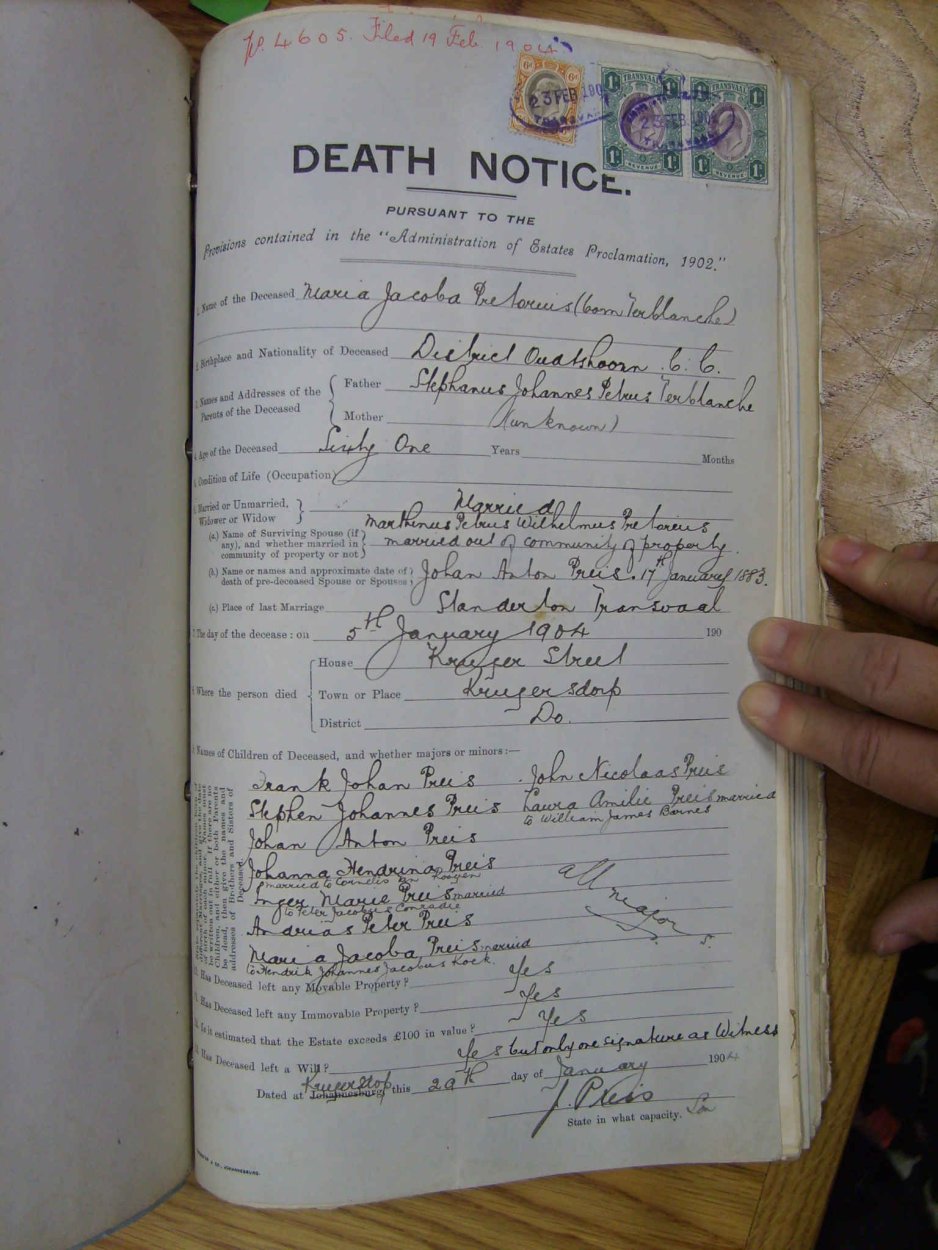 No. 4605. Filed 19 Feb. 1904
6d 6d
23 FEB 190
TRANSVAAL
1/- TRANSVAAL 1/- 1/- TRANSVAAL 1/-
23 FEB 190
TRANSVAAL
REVENUE REVENUE
DEATH NOTICE.
PURSUANT TO THE
Provisions contained in the "Administration of Estates Proclamation, 1902."
1. Name of the Deceased Maria Jacoba Pretorius (born Terblanche)
2. Birthplace and Nationality of Deceased District Oudtshoorn. C. C.
3. Names and Addresses of the Parents of the Deceased { Father Stephanus Johannes Petrus Terblanche
Mother (unknown)
4. Age of the Deceased Sixty One Years Months
5. Condition of Life (Occupation)
6. Married or Unmarried, Widower or Widow } Married
(a.) Name of Surviving Spouse (if any), and whether married in community of property or not } Marthinus Petrus Wilhelmus Pretorius
married out of community of property.
(b.) Name or names and approximate date of death of pre-deceased Spouse or Spouses } Johan Anton Preis. 17th January 1883.
(c.) Place of last Marriage Standerton Transvaal
7. The day of the decease: on 5th January 1904 190
8. Where the person died { House Kruger Street
Town or Place Krugersdorp
District Do.
9. Names of Children of Deceased, and whether majors or minors:—
Children, and either or both Parents
be dead, then give the names and
addresses of Brothers and Sisters of
Deceased.
Frank Johan Preis
John Nicolaas Preis
Stephen Johannes Preis
Laura Amilie Preis married
to William James Barnes
Johan Anton Preis
Johanna Hendrina Preis
married to Cornelis
Inger Marie Preis married
to Peter Jacobus Conradie
Andrias Peter Preis
Maria Jacoba Preis married
to Hendrik Johannes Jacobus Kock.
all majors.
10. Has Deceased left any Movable Property? Yes
11. Has Deceased left any Immovable Property? Yes
12. Is it estimated that the Estate exceeds £100 in value? Yes
13. Has Deceased left a Will? Yes but only one signature as Witness
Dated at Johannesburg, Krugersdorp this 29th day of January 1904
J. Preis
State in what capacity. Son
& CO., JOHANNESBURG.